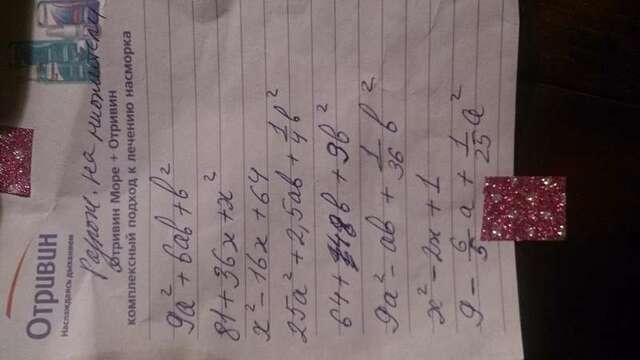 Отривин
Наслаждаясь дыханием
Разлож. на множители
Отривин Море + Отривин
комплексный подход к лечению насморка
9a² + 6ab + b²
81 + 36x + x²
x² - 16x + 64
25a² + 2,5ab + 1/4 b²
64 + 48b + 9b²
9a² - ab + 1/36 b²
x² - 2x + 1
9 - 6/5 a + 1/25 a²